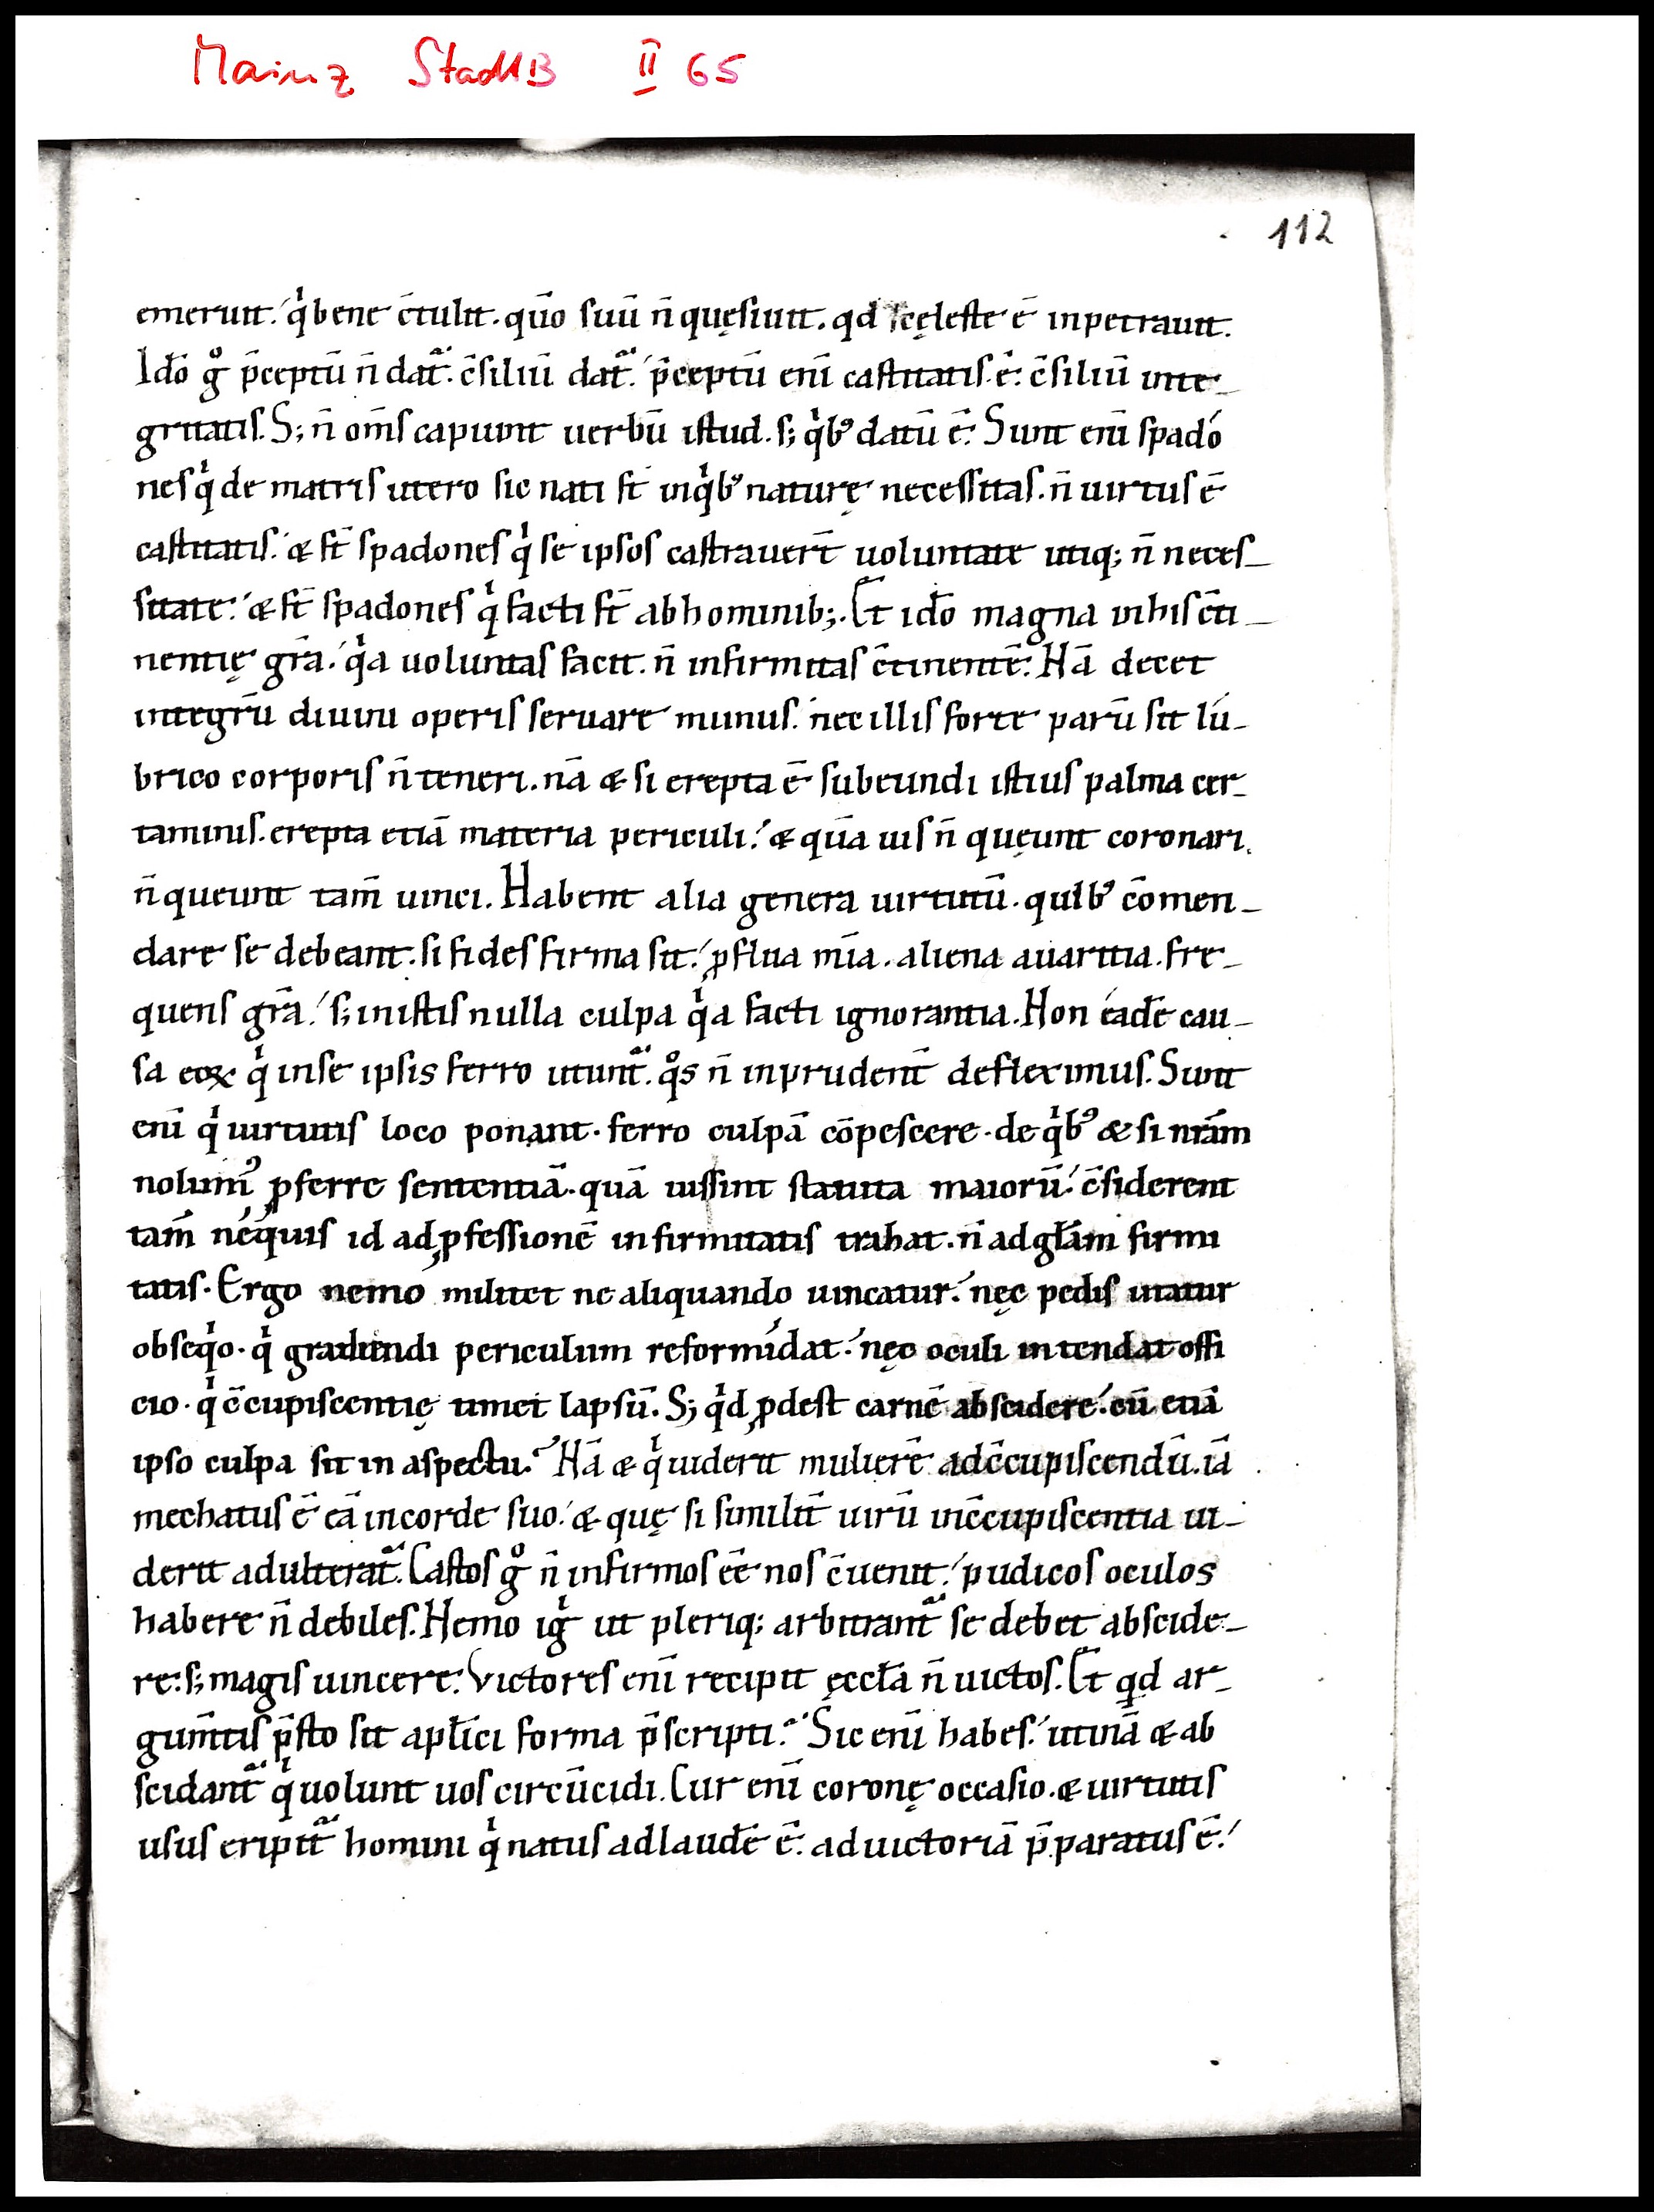 Mainz StadtB II 65
112
emerunt. q̇ bene c̄tulit. quō suū n̄ quęsiuit. qd cęleste ē inpetrauit.
Idō g̊ p̄ceptū n̄ dat᷑. c̄siliū dat᷑. p̄ceptū enī castitatis ē. c̄siliū inte-
gritatis. S; n̄ om̄s capiunt uerbū istud. s; q̇bꝰ datū ē. Sunt enī spado
nes q̇ de matris utero sic nati st̄ in q̇bꝰ naturę necessitas. n̄ uirtus ē
castitatis. & st̄ spadones q̇ se ipsos castrauert̄ uoluntate utiq; n̄ neces-
sitate. & st̄ spadones q̇ facti st̄ ab hominib;. Et idō magna in his c̄ti-
nentię gr̄a. q̇a uoluntas facit. n̄ infirmitas c̄tinentē. Nā decet
integrū diuini operis seruare munus. nec illis forte parū sit lú-
brico corporis n̄ teneri. nā & si erepta ē subeundi istius palma cer-
taminis. erepta etiā materia periculi. & quāuis n̄ quęunt coronari.
n̄ queunt tam̄ uinci. Habent alia genera uirtutū. quibꝰ cōmen-
dare se debeant. si fides firma sit. ꝓflua mīa. aliena auaritia. fre-
quens gr̄a. s; in istis nulla culpa q̇a facti ignorantia. Non eadē cau-
sa eoꝝ q̇ in se ipsis ferro utunt᷑. q̊s n̄ inprudent̄ defleximus. Sunt
enī q̇ uirtutis loco ponant. ferro culpā cōpescere. de q̇bꝰ & si nr̄am
nolumꝰ ꝓferre sententiā. quā iussint statuta maiorū. c̄siderent
tam̄ néquis id ad ꝓfessionē infirmitatis trahat. n̄ ad gl̄am firmi
tatis. Ergo nemo militet ne aliquando uincatur. nęc pedis utatur
obseq̇o. q̇ gradiendi periculum reformídat. nęc oculi intendat offi
cio. q̇ c̄cupiscentię timet lapsū. S; q̇d ꝓdest carnē abscidere. cū etiā
ipso culpa sit in aspectu. Nā & q̇ uiderit mulierē ad c̄cupiscendū. iā
mechatus ē eā in corde suo. & quę si similit̄ uirū in c̄cupiscentia ui-
derit adulterat᷑. Castos g̊ n̄ infirmos eē nos c̄uenit. pudicos oculos
habere n̄ debiles. Nemo ig̍ ut pleriq; arbitrant᷑ se debet abscide-
re. s; magis uincere. Victores enī recipit ęccl̄a n̄ uictos. Et qd ar-
gum̄tis p̄sto sit apl̄ici forma p̄scripti. Sic enī habes. utinā & ab
scidant᷑ q̇ uolunt uos circūcidi. Cur enī coronę occasio. & uirtutis
usus eripit᷑ homini q̇ natus ad laudē ē. ad uictoriā p̄paratus ē.